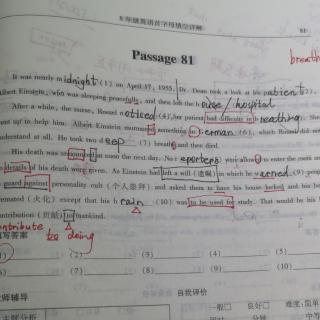 八年级英语首字母填空详解 81
Passage 81
breath
It was nearly midnight (1) on April 17, 1955. Dr. Dean took a look at his patient (2),
Albert Einstein, who was sleeping peacefully, and then left the house / hospital
After a while, the nurse, noticed (4) her patient had difficulty in breathing. She
went up to help him. Albert Einstein mumured something in German (6), which did not
understand at all. He took two deep (7) breath and then died.
His death was announced at soon the next day. No reporters were allowed to enter the room and
no details of his death were given. As Einstein had left a will (遗嘱) in which he warned (9) people
to guard against personality cult (个人崇拜) and asked them to have his house locked and his body
cremated (火化) except that his brain (10) was to be used for study. That would be his last
contribution (贡献) to mankind.
contribute to doing
填写答案
(1) (2) (3) (4) (5)
(6) (7) (8) (9) (10)
教师辅导 自我评价
一般□ 良好□ 难度: 简单
主题分析